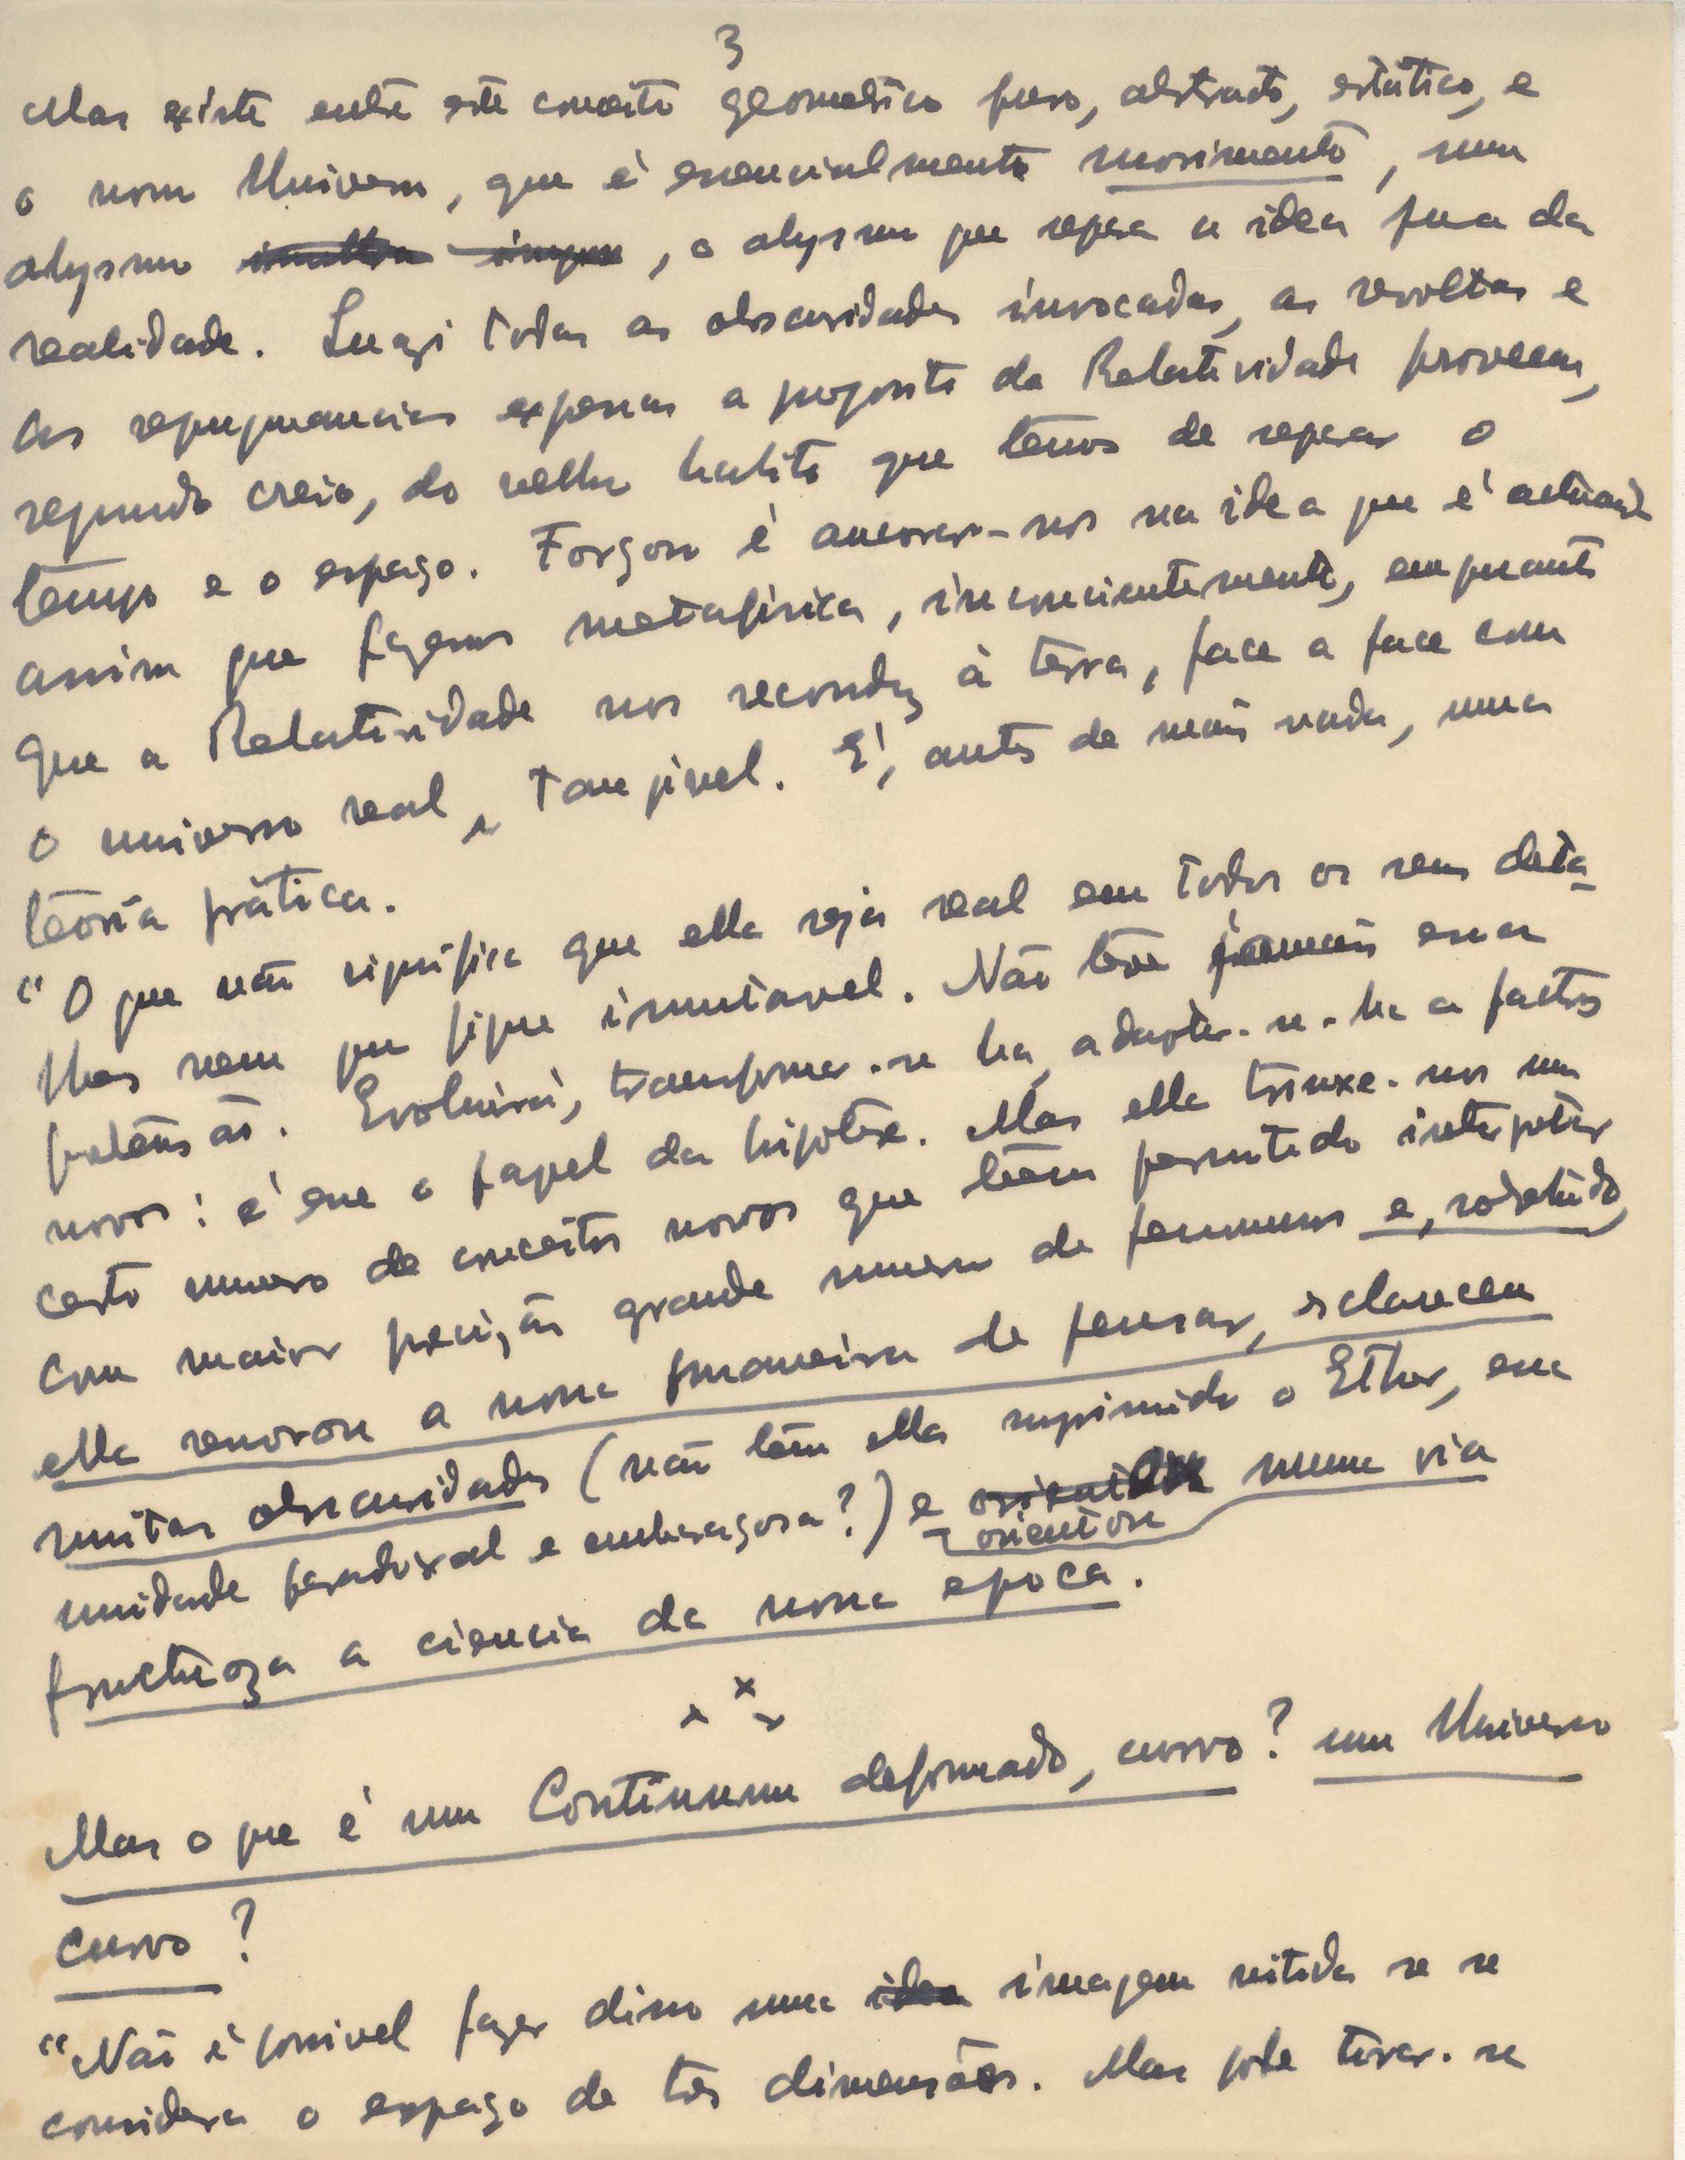 3
Mas existe entre este conceito geometrico puro, abstracto, estático, e
o nosso Universo, que é essencialmente movimento, um
abysmo , o abysmo que separa a idea pura da
realidade. Quasi todas as obscuridades invocadas, as revoltas e
as repugnancias expressas a proposito da Relatividade provêem,
segundo creio, do velho habito que temos de separar o
tempo e o espaço. Forçoso é ancorar-nos na idea que é actuando
assim que fazemos metafísica, inconscientemente, emquanto
que a Relatividade nos reconduz à terra, face a face com
o universo real e tangivel. É, antes de mais nada, uma
teoria prática.
"O que não significa que ella seja real em todos os seus deta-
lhes nem que fique imutavel. Não teve jamais essa
pretensão. Evoluirá, transformar-se ha, adaptar-se-ha a factos
novos: é esse o papel da hipotese. Mas ella trouxe-nos um
certo numero de conceitos novos que teem permitido interpretar
com maior precisão grande numero de fenomenos e, sobretudo,
ella renovou a nossa maneira de pensar, esclareceu
muitas obscuridades (não tem ella suprimido o Ether, essa
unidade paradoxal e embaraçosa?) e orientou numa via
fructuoza a ciencia da nossa epoca.
x x x
Mas o que é um Continuum deformado, curvo? um Universo
curvo?
"Não é possivel fazer disso uma idea imagem nitida se se
considera o espaço de tres dimensões. Mas pode tirar-se